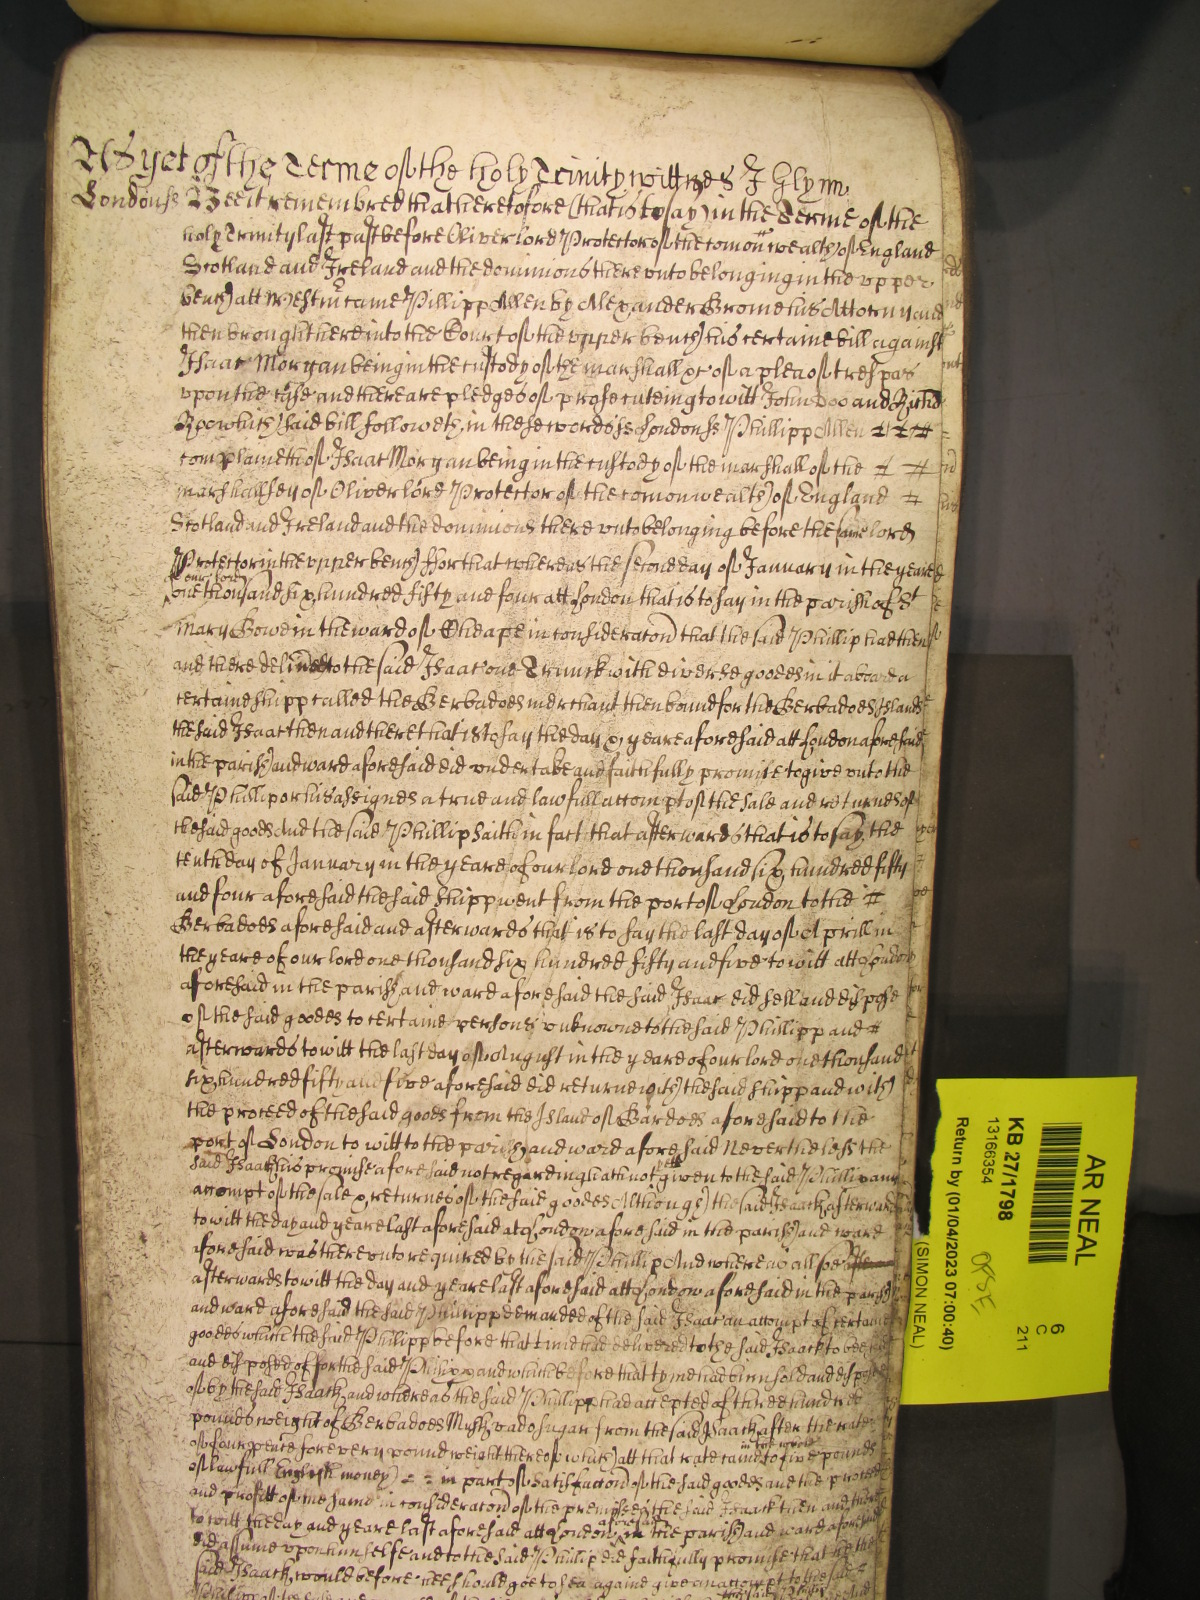 As yet of the Terme of the holy Trinity wittnes J Glynn
Londonss Bee it remembred that heretofore (that is to say) in the Terme of the
holy Trinity last past before Oliver lord Protector of the comon wealth of England
Scotland and Ireland and the dominions there unto belonging in the upper
bench att Westmr came Phillipp Allen by Alexander Brome his Attorny and
then brought here into the Court of the upper bench his certaine bill against
Isaac Morgan being in the custody of the marshall &c of a plea of trespas
upon the case and there are pledges of prosecuteing to witt John Doo and Richd
Roo which said bill followeth in these words ss Londonss Phillipp Allen
complaineth of Isaac Morgan being in the custody of the marshall of the
marshallsey of Oliver lord Protector of the comonwealth of England
Scotland and Ireland and the dominions there unto belonging before the same lord
Protector in the upper bench ffor that whereas the second day of January in the yeare
of our lord
one thousand six hundred fifty and four att London that is to say in the parish of St
Mary Bowe in the ward of Cheape in consideracon that the said Phillip had then
and there delivered to the said Isaac one Trunck with diverse goodes in it aboard a
certaine shipp called the Berbadoes merchant then bound for the Berbadoes Islands
the said Isaac then and there that is to say the day & yeare aforesaid att London aforesaid
in the parish and ward aforesaid did undertake and faithfully promise to give unto the
said Phillip or his assignes a true and lawfull accompt of the sale and returnes of
the said goods And the said Phillip saith in fact that afterwards that is to say the
tenth day of January in the yeare of our lord one thousand six hundred fifty
and four aforesaid the said shipp went from the port of London to the
Berbadoes aforesaid and afterwards that is to say the last day of Aprill in
the yeare of our lord one thousand six hundred fifty and five to witt att London
aforesaid in the parish and ward aforesaid the said Isaac did sell and dispose
of the said goodes to certaine persons unknowne to the said Phillipp and
afterwards to witt the last day of August in the yeare of our lord one thousand
six hundred fifty and five aforesaid did returne with the said shipp and with
the proceed of the said goods from the Island of Bardoes aforesaid to the
port of London to witt to the parish and ward aforesaid Neverthelesse the
said Isaack his promise aforesaid not regarding hath not yett given to the said Phillip any
accompt of the sale & returnes of the said goodes Although the said Isaack afterwards
to witt the day and yeare last aforesaid att London aforesaid in the parish and ward
aforesaid was thereunto required by the said Phillip And whereas allsoe
afterwards to witt the day and yeare last aforesaid att London aforesaid in the parish
and ward aforesaid the said Phillipp demanded of the said Isaac an accompt of certaine
goodes which the said Phillipp before that time had delivered to the said Isaack to bee
and disposed of for the said Phillipp and which before that tyme had binn sold and disposed
of by the said Isaack and whereas the said Phillipp had accepted of three hundred
pounds weight of Berbadoes Muschovado sugar from the said Isaack after the rate
of four pence for every pound weight thereof which att that rate came in the whole to five pounds
of lawfull English money in part of satisfaccon of the said goods and the proceed
and profitt of the same in consideracon of the premisses the said Isaack then and there
to witt the day and yeare last aforesaid att London aforesaid in the parish and ward aforesaid
did assume upon him selfe and to the said Phillip did faithfully promise that he the
said Isaack would before hee should goe to sea againe give an accompt to the said
AR NEAL
KB 27/1798
13166354
Return by (01/04/2023 07:00:40)
(SIMON NEAL)
6
C
211